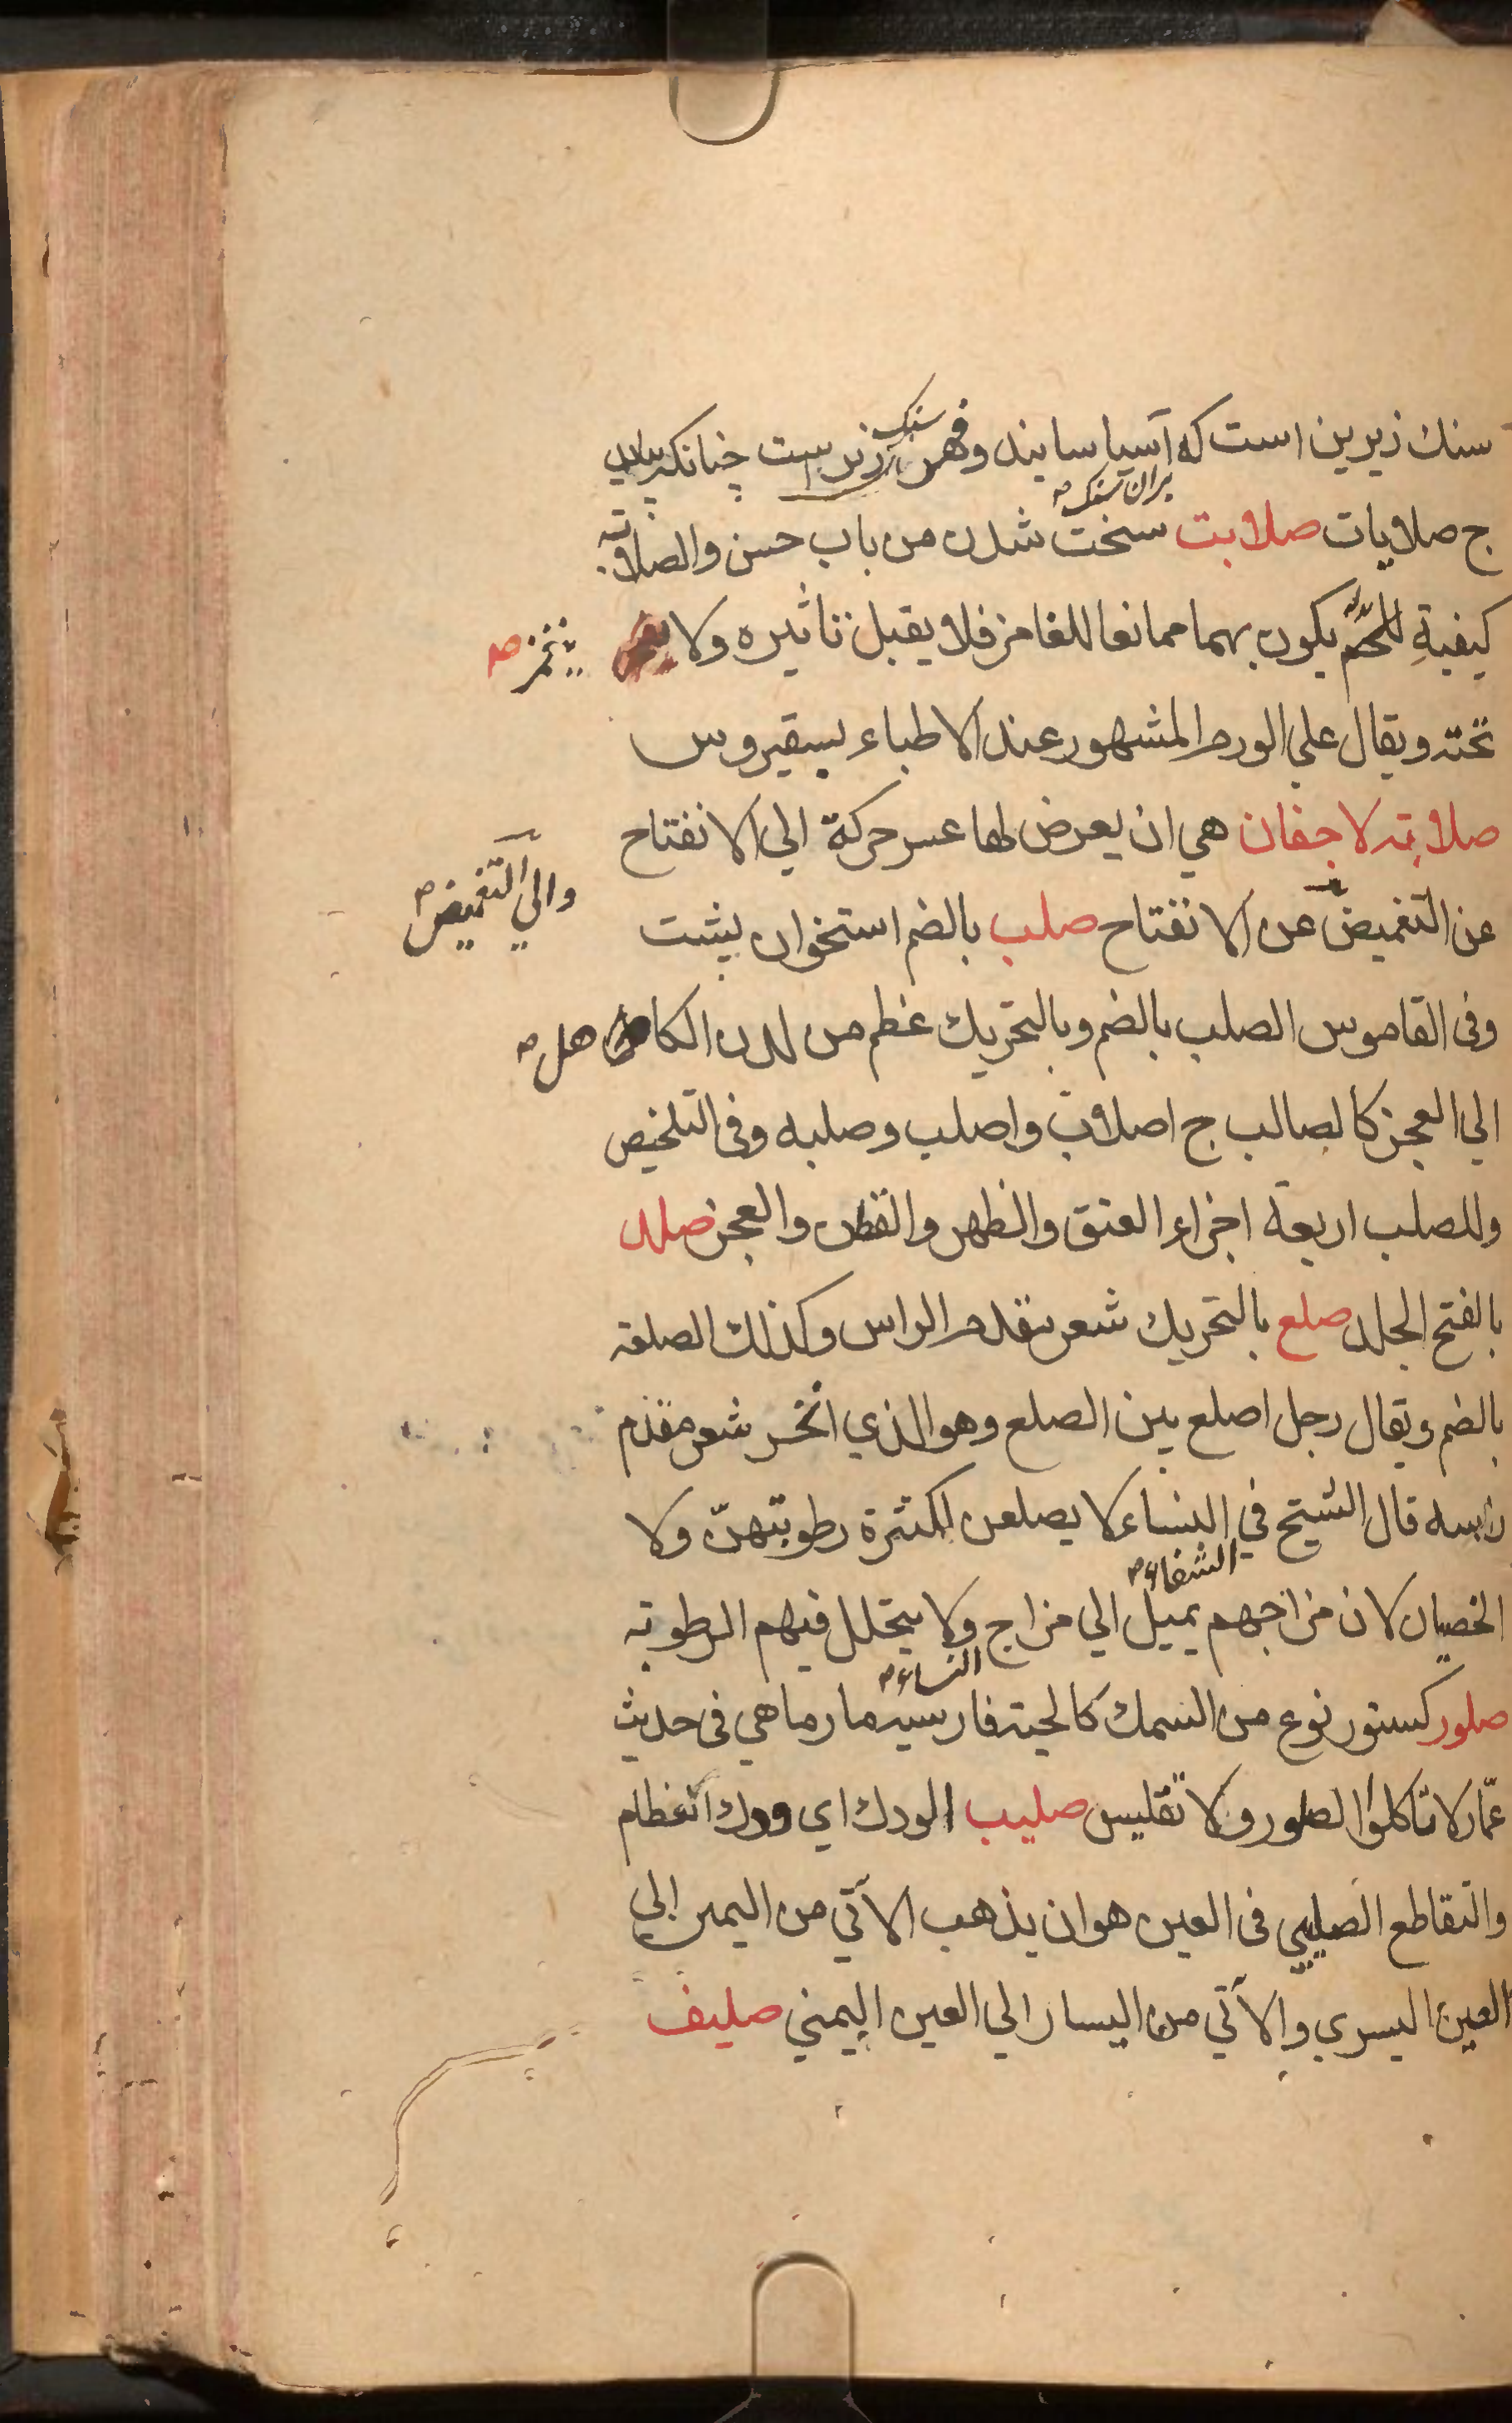 سنك زيرين است كه آسيا سايند وفهر سنك زبرست چنانكه بيايد
بران سنك
ج صلايات صلابت سخت شدن من باب حسن والصلابة
كيفية للحم يكون بهما ممانعا للغامز فلا يقبل تاثيره ولا
ينغمز صح
تحته ويقال علي الورم المشهور عند الاطباء بسقيروس
صلابته لاجفان هي ان يعرض لها عسر حركة الي الانفتاح
والي التغميض
عن التغميض عن الانفتاح صلب بالضم استخوان پشت
وفى القاموس الصلب بالضم وبالتحريك عظم من لدن الكا هل
الي العجز كالصالب ج اصلاب واصلب وصلبه وفى التلخيص
وللصلب اربعة اجزاء العنق والظهر والقطن والعجز صلد
بالفتح الجلد صلع بالتحريك شعر مقدم الراس وكذلك الصلعة
بالضم ويقال رجل اصلع بين الصلع وهو الذي انحسر شعر مقدم
راسه قال الشيخ في النساء لا يصلعن لكثرة رطوبتهنّ ولا
الشفاء
الخصيان لان مزاجهم يميل الي مزاج ولا يتحلل فيهم الرطوبة
النساء
صلور كسنور نوع من السمك كالحية فارسيه مارماهي فى حديث
عمّار لا تاكلوا الصلور ولا تقليس صليب الودك اي ودك العظام
والتقاطع الصليبي فى العين هو ان يذهب الآتي من اليمين الي
العين اليسري والآتي من اليسار الي العين اليمني صليف